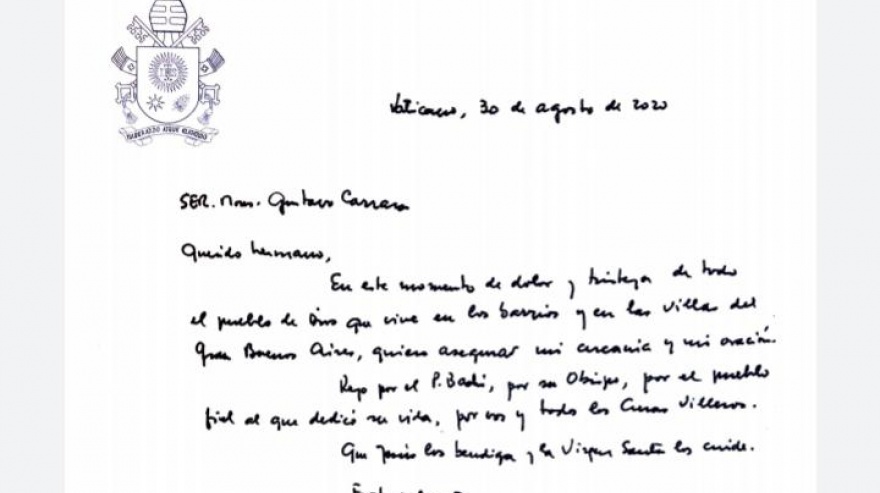 MISERANDO ATQUE ELIGENDO
Vaticano, 30 de agosto de 2020
SER. Mons. Gustavo Carrara
Querido hermano,
En este momento de dolor y tristeza de todo
el pueblo de Dios que vive en los barrios y en las villas del
Gran Buenos Aires, quiero asegurar mi cercanía y mi oración.
Rezo por el P. Bachi, por su Obispo, por el pueblo
fiel al que dedicó su vida, por vos y todos los Curas Villeros.
Que Jesús los bendiga y la Virgen Santa los cuide.